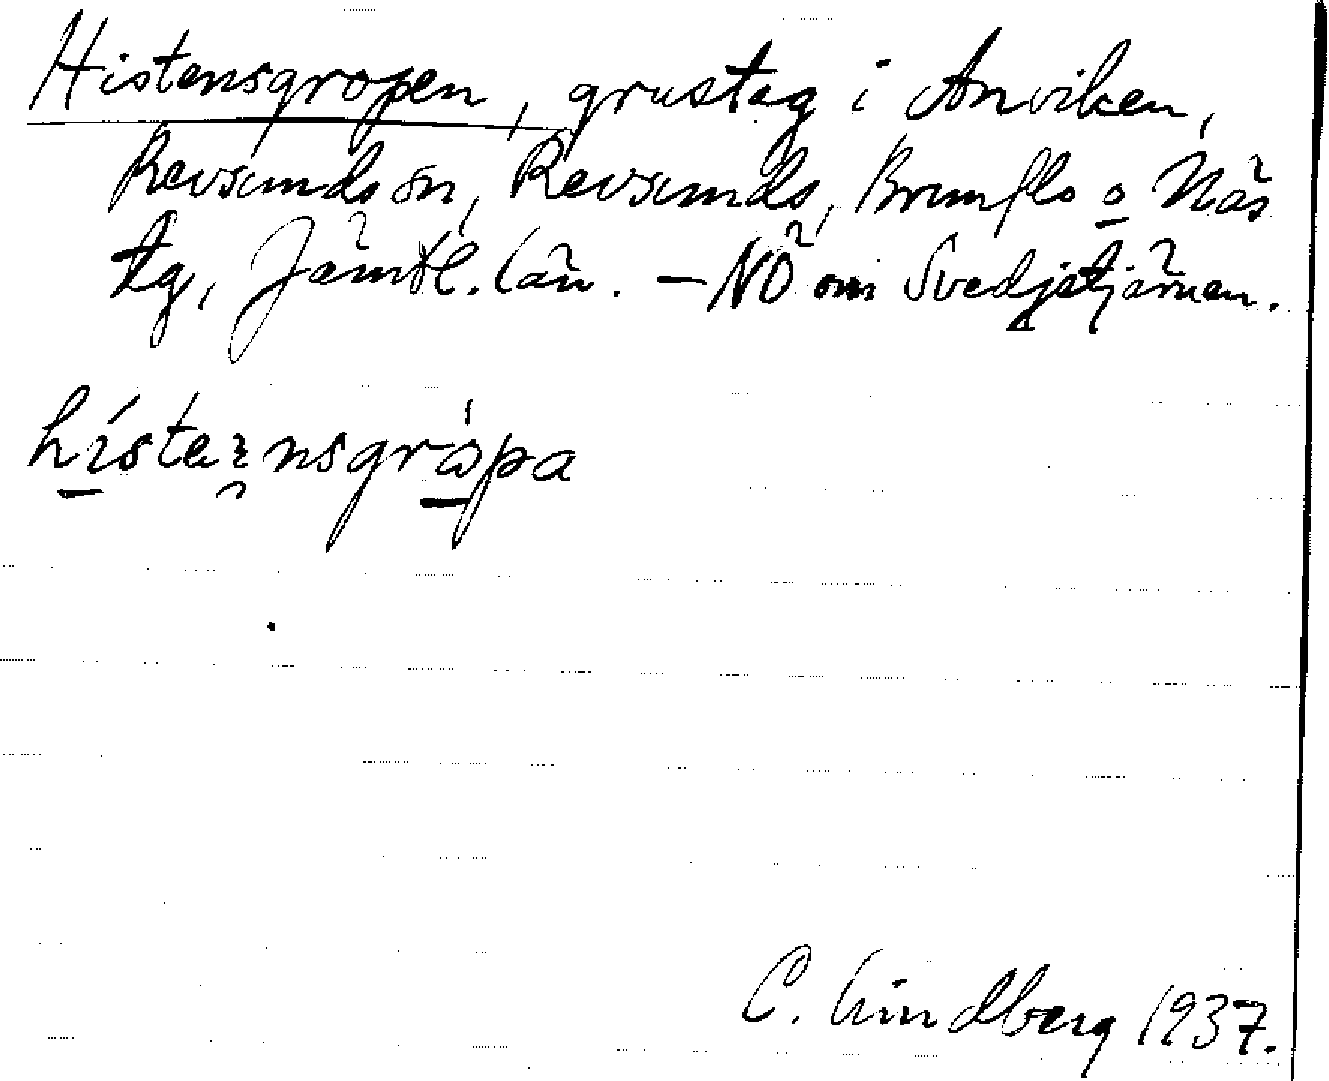 Histensgropen, grustag i Anviken,
Revsunds sn, Revsunds, Brunflo o Näs
tg, Jämtl. län. – NÖ om Svedjetjärnen.
hístensgrópa
C. Lindberg 1937.